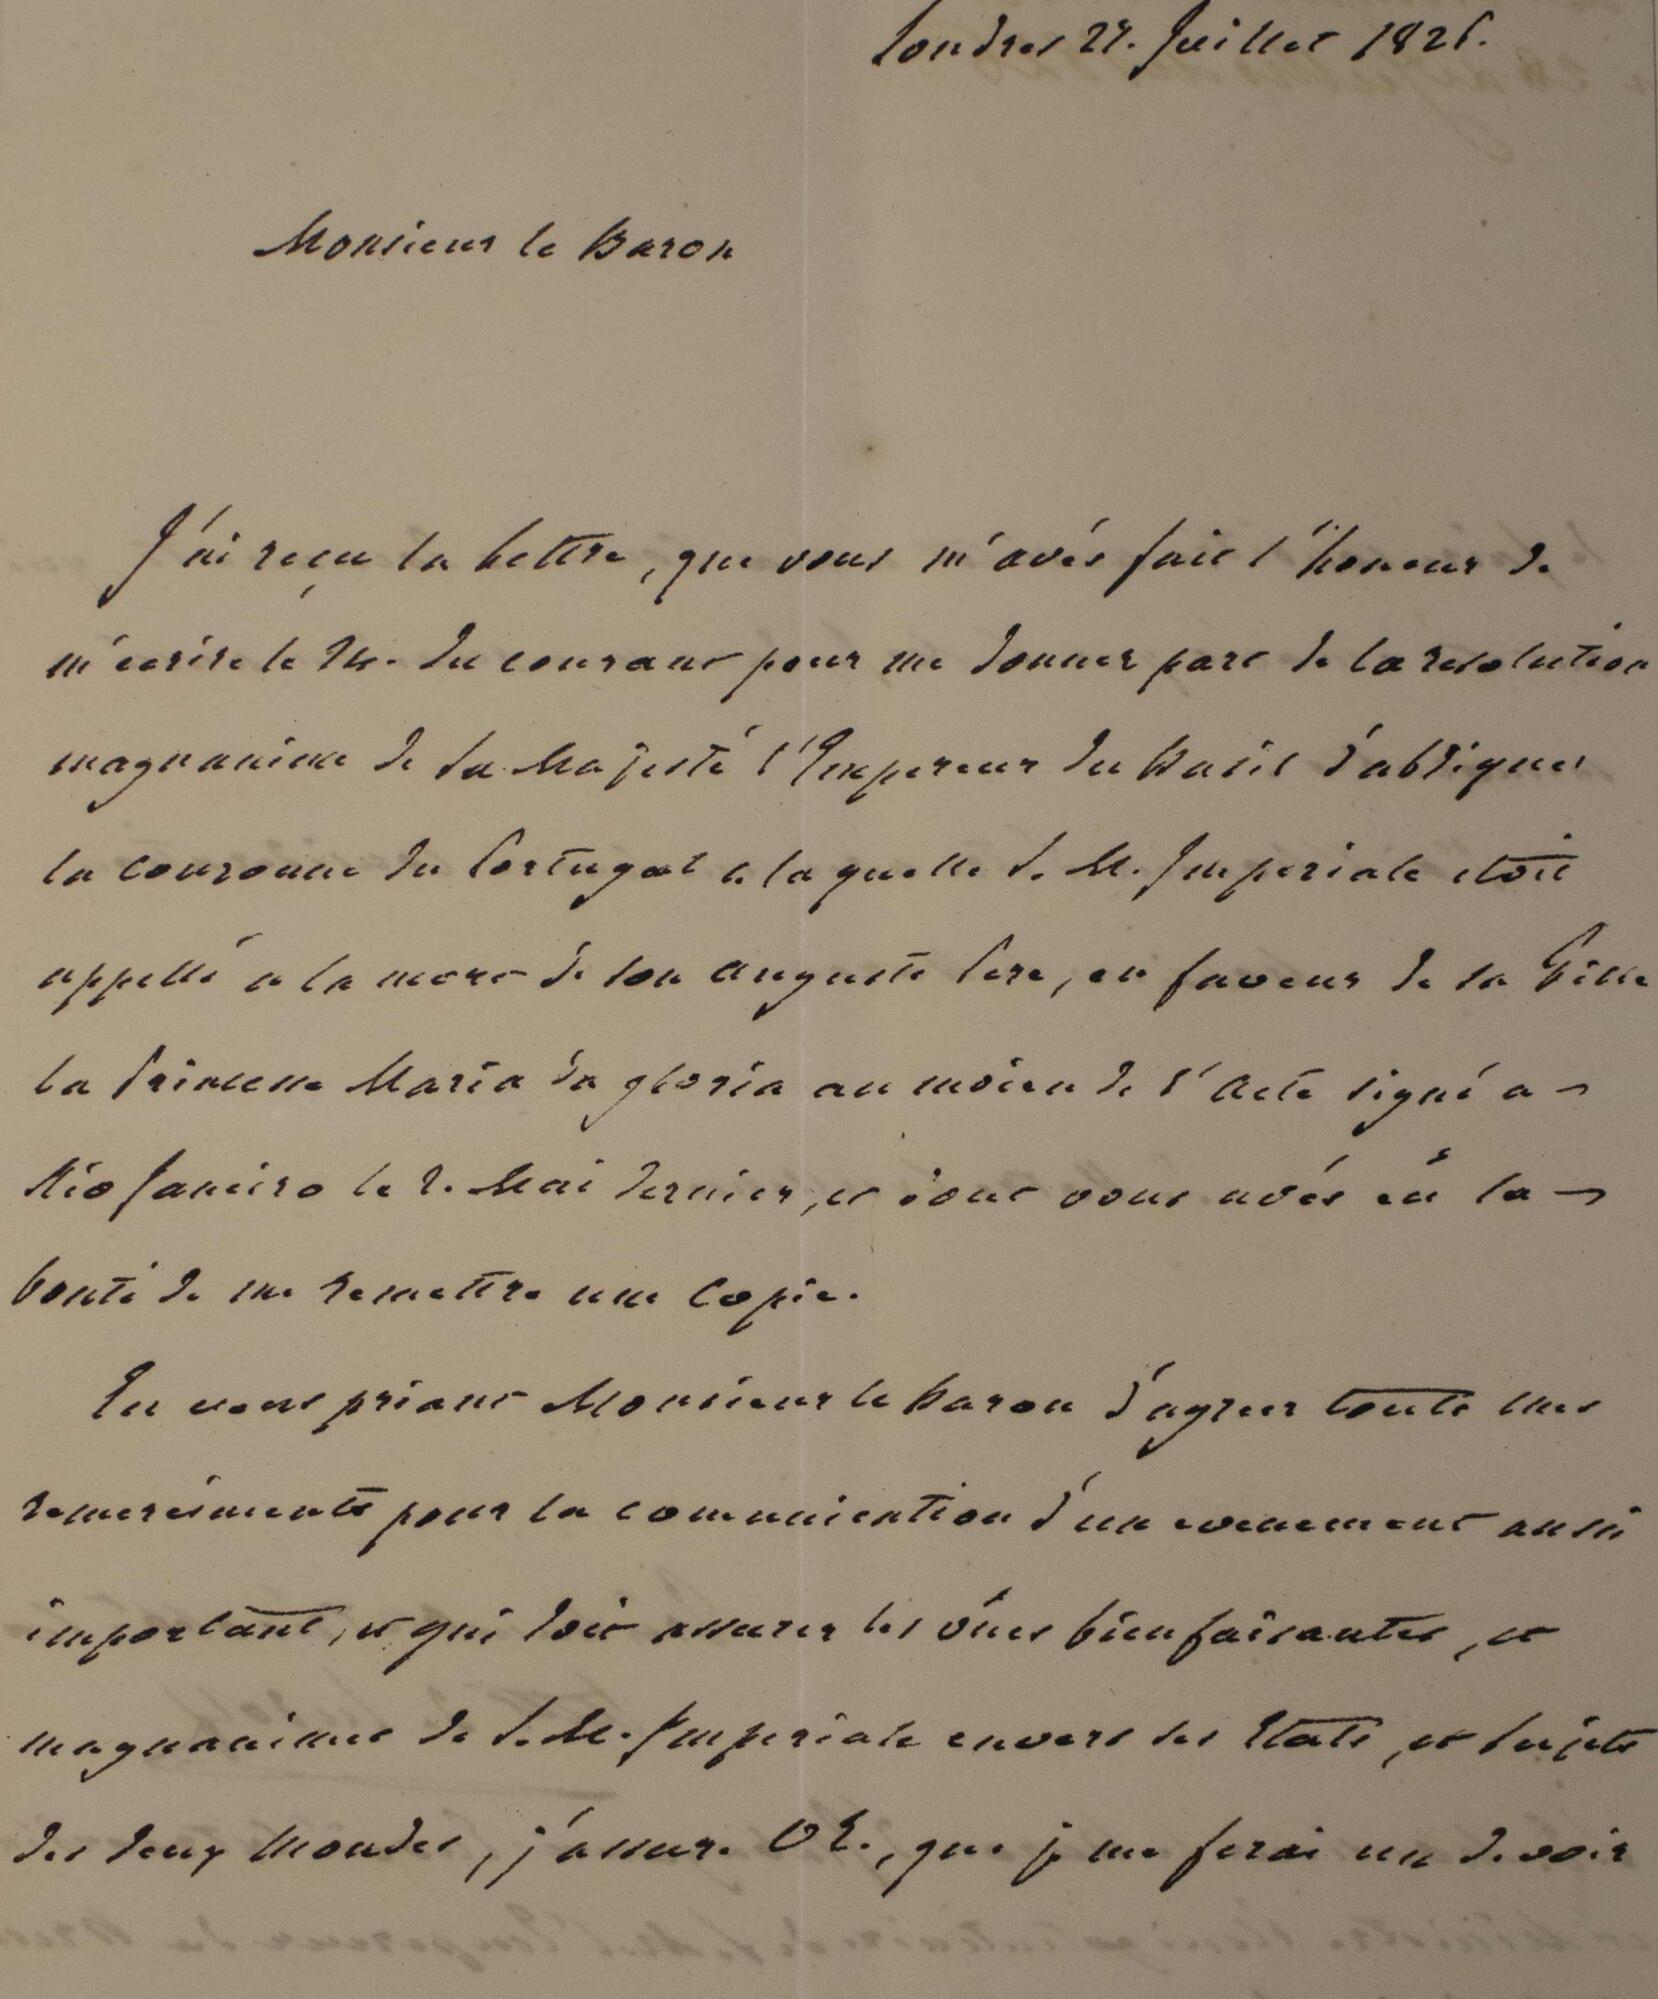 Londres 27. Juillet 1826.
Monsieur le Baron
J'ai reçu la lettre, que vous m'avés fait l'honeur de
m'ecrire le 24. du courant pour me donner part de la resolution
magnanime de Sa Majesté l'Empereur du Brasil d'abdiquer
la couronne du Portugal a la quelle S. M. Imperiale etoit
appellé a la mort de son auguste Pere, en faveur de sa Fille
la Princesse Maria da gloria au moien de l'Acte signé a
Rio Janeiro le 2. Mai dernier, et dont vous avés eû la
bonté de me remettre une Copie.
En vous priant Monsieur le Baron d'agreer touts mes
remercîments pour la communication d'un evenement aussi
important, et qui doit assurer les vües bienfaisantes, et
magnanimes de S. M. Imperiale envers ses Etats, et Sujets
des deux Mondes, j'assure VE., que je me ferai un devoir